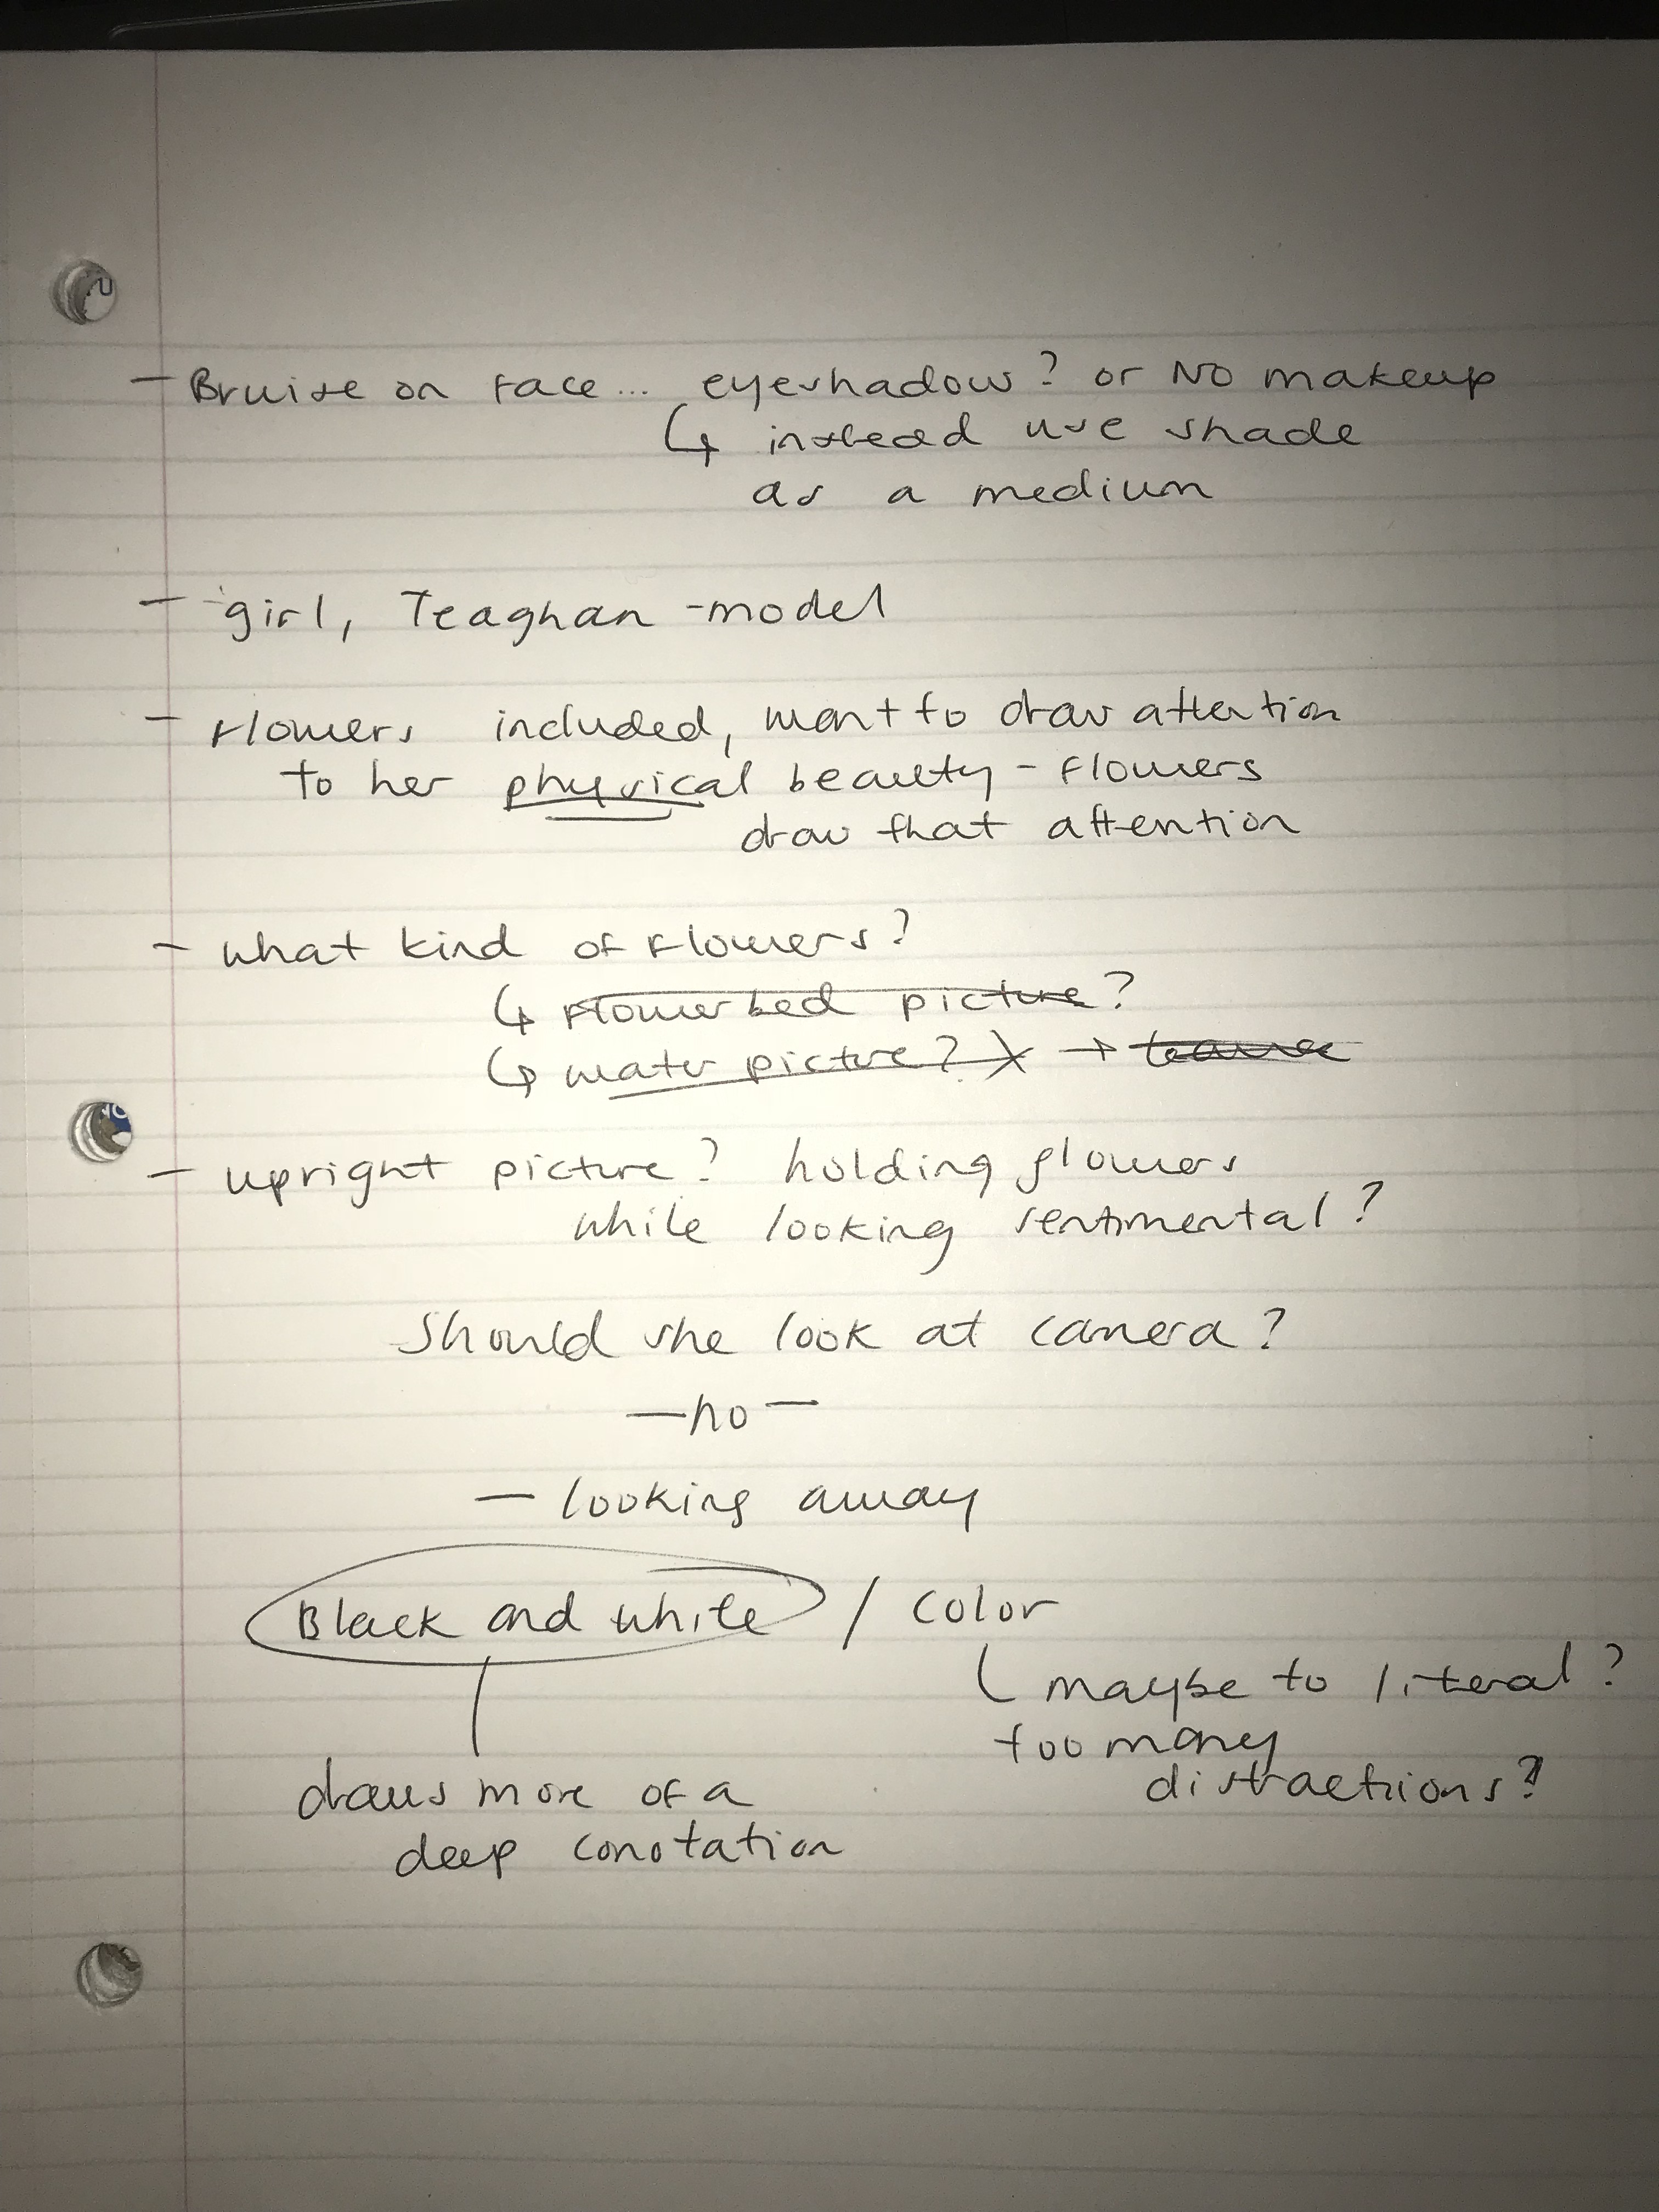 - Bruise on face... eyeshadow? or No makeup
↳ instead use shade
as a medium
- girl, Teaghan - model
- Flowers included, want to draw attention
to her physical beauty - flowers
draw that attention
- what kind of flowers?
↳ flower bed picture?
↳ water picture? X →
- upright picture? holding flowers
while looking sentimental?
Should she look at camera?
- no -
- looking away
Black and white / color
maybe to literal?
too many
distractions?
draws more of a
deep conotation